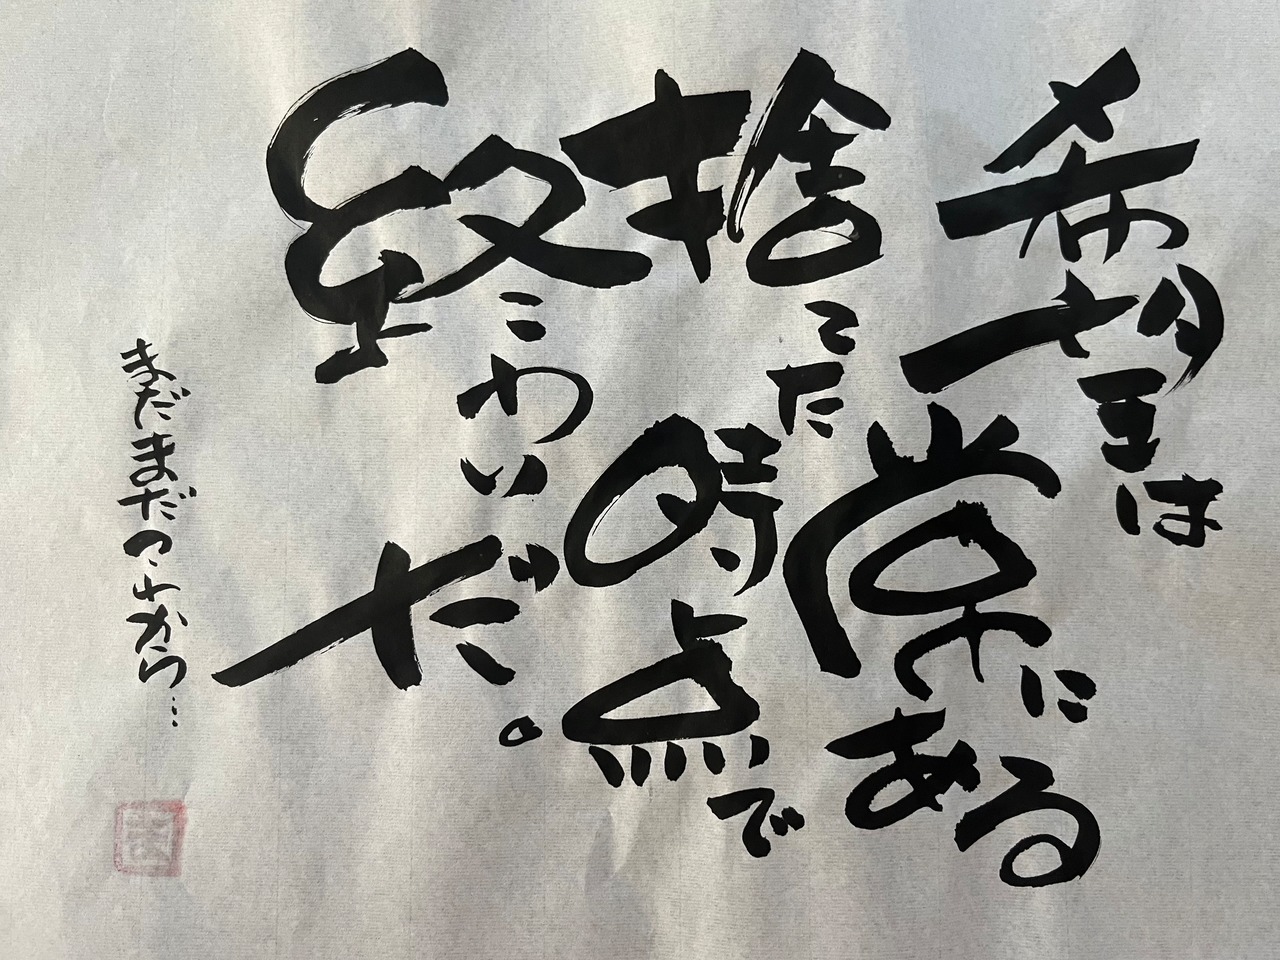 希望は
常にある
捨てた時点で
終わりだ。
まだまだこれから…